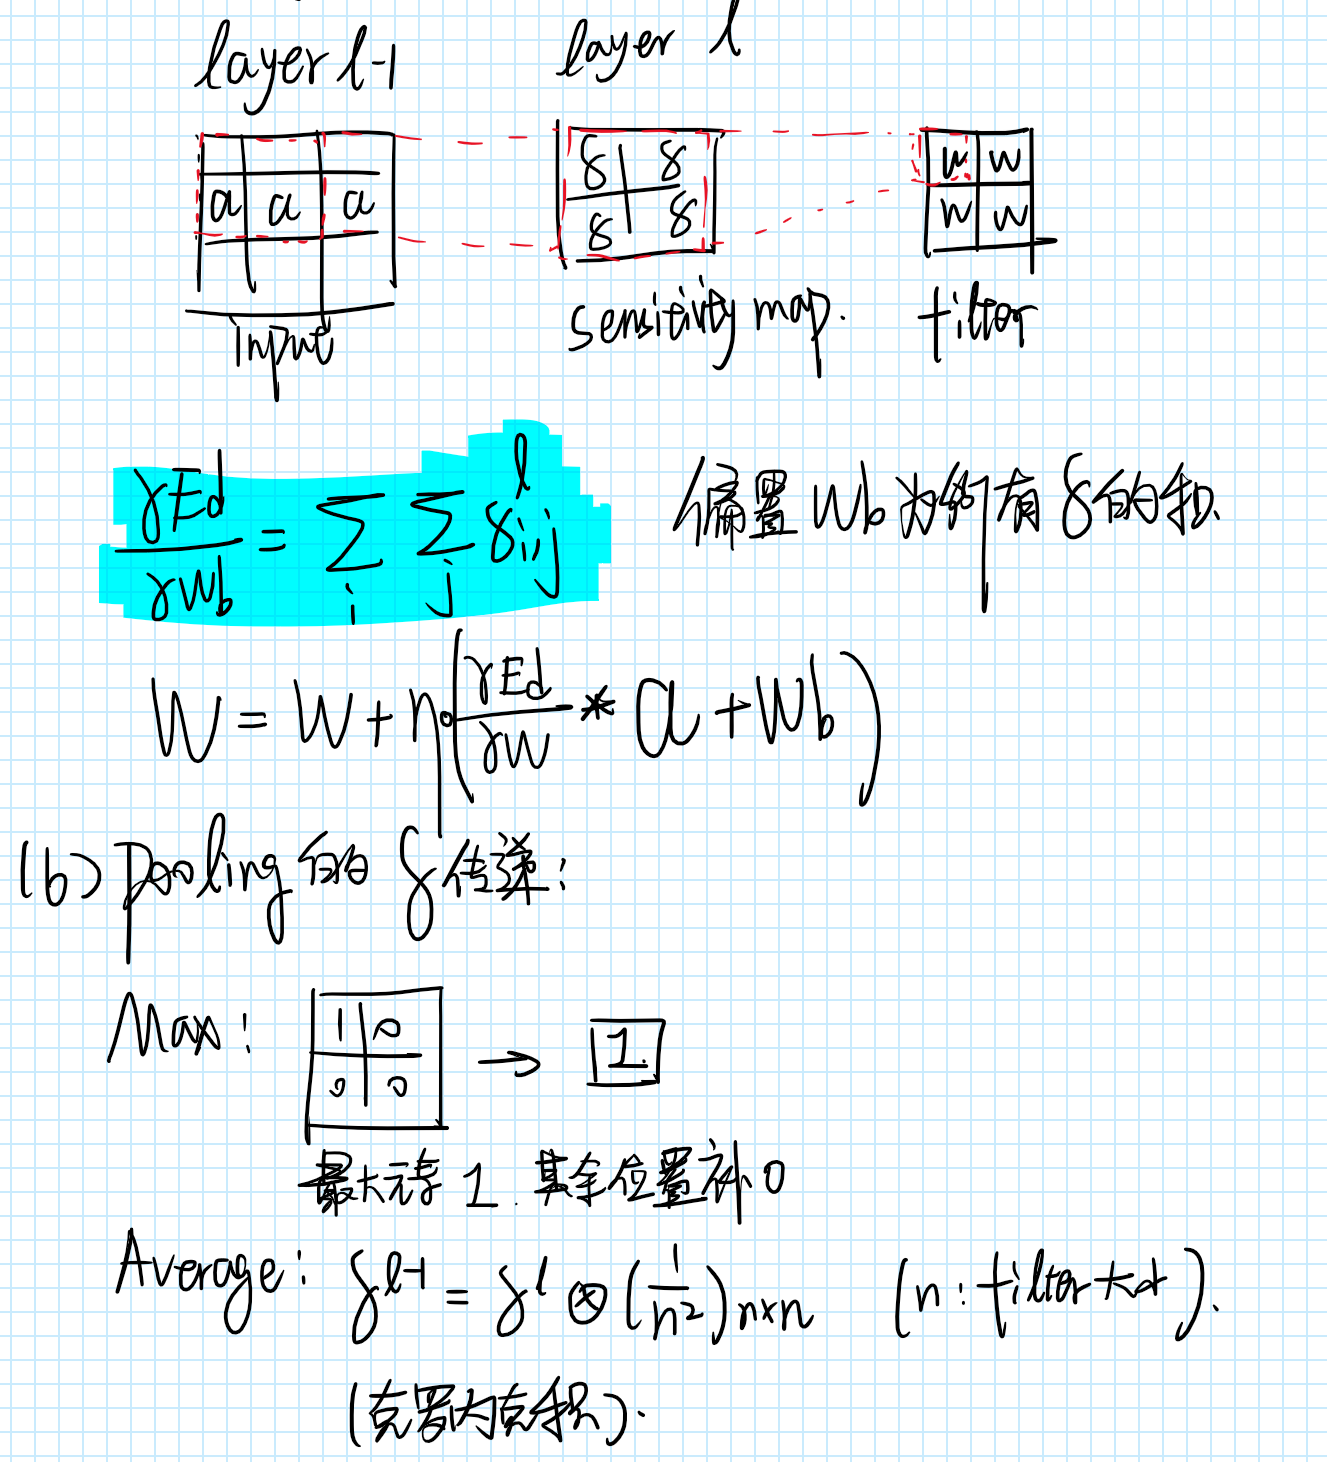 layer l-1 layer l
a a a
δ δ
δ δ
w w
w w
input sensitivity map. filter
γEd/γWb = Σi Σj δ^l i,j 偏置 Wb 为所有 δ 的和.
W = W + η·(γEd/γW * a + Wb)
(b) pooling 的 δ 传递:
Max: 1 0 → 1
0 0
最大元素 1. 其余位置补 0
Average: δ^(l-1) = δ^l ⊗ (1/n²)n×n (n: filter 大小).
(克罗内克积).